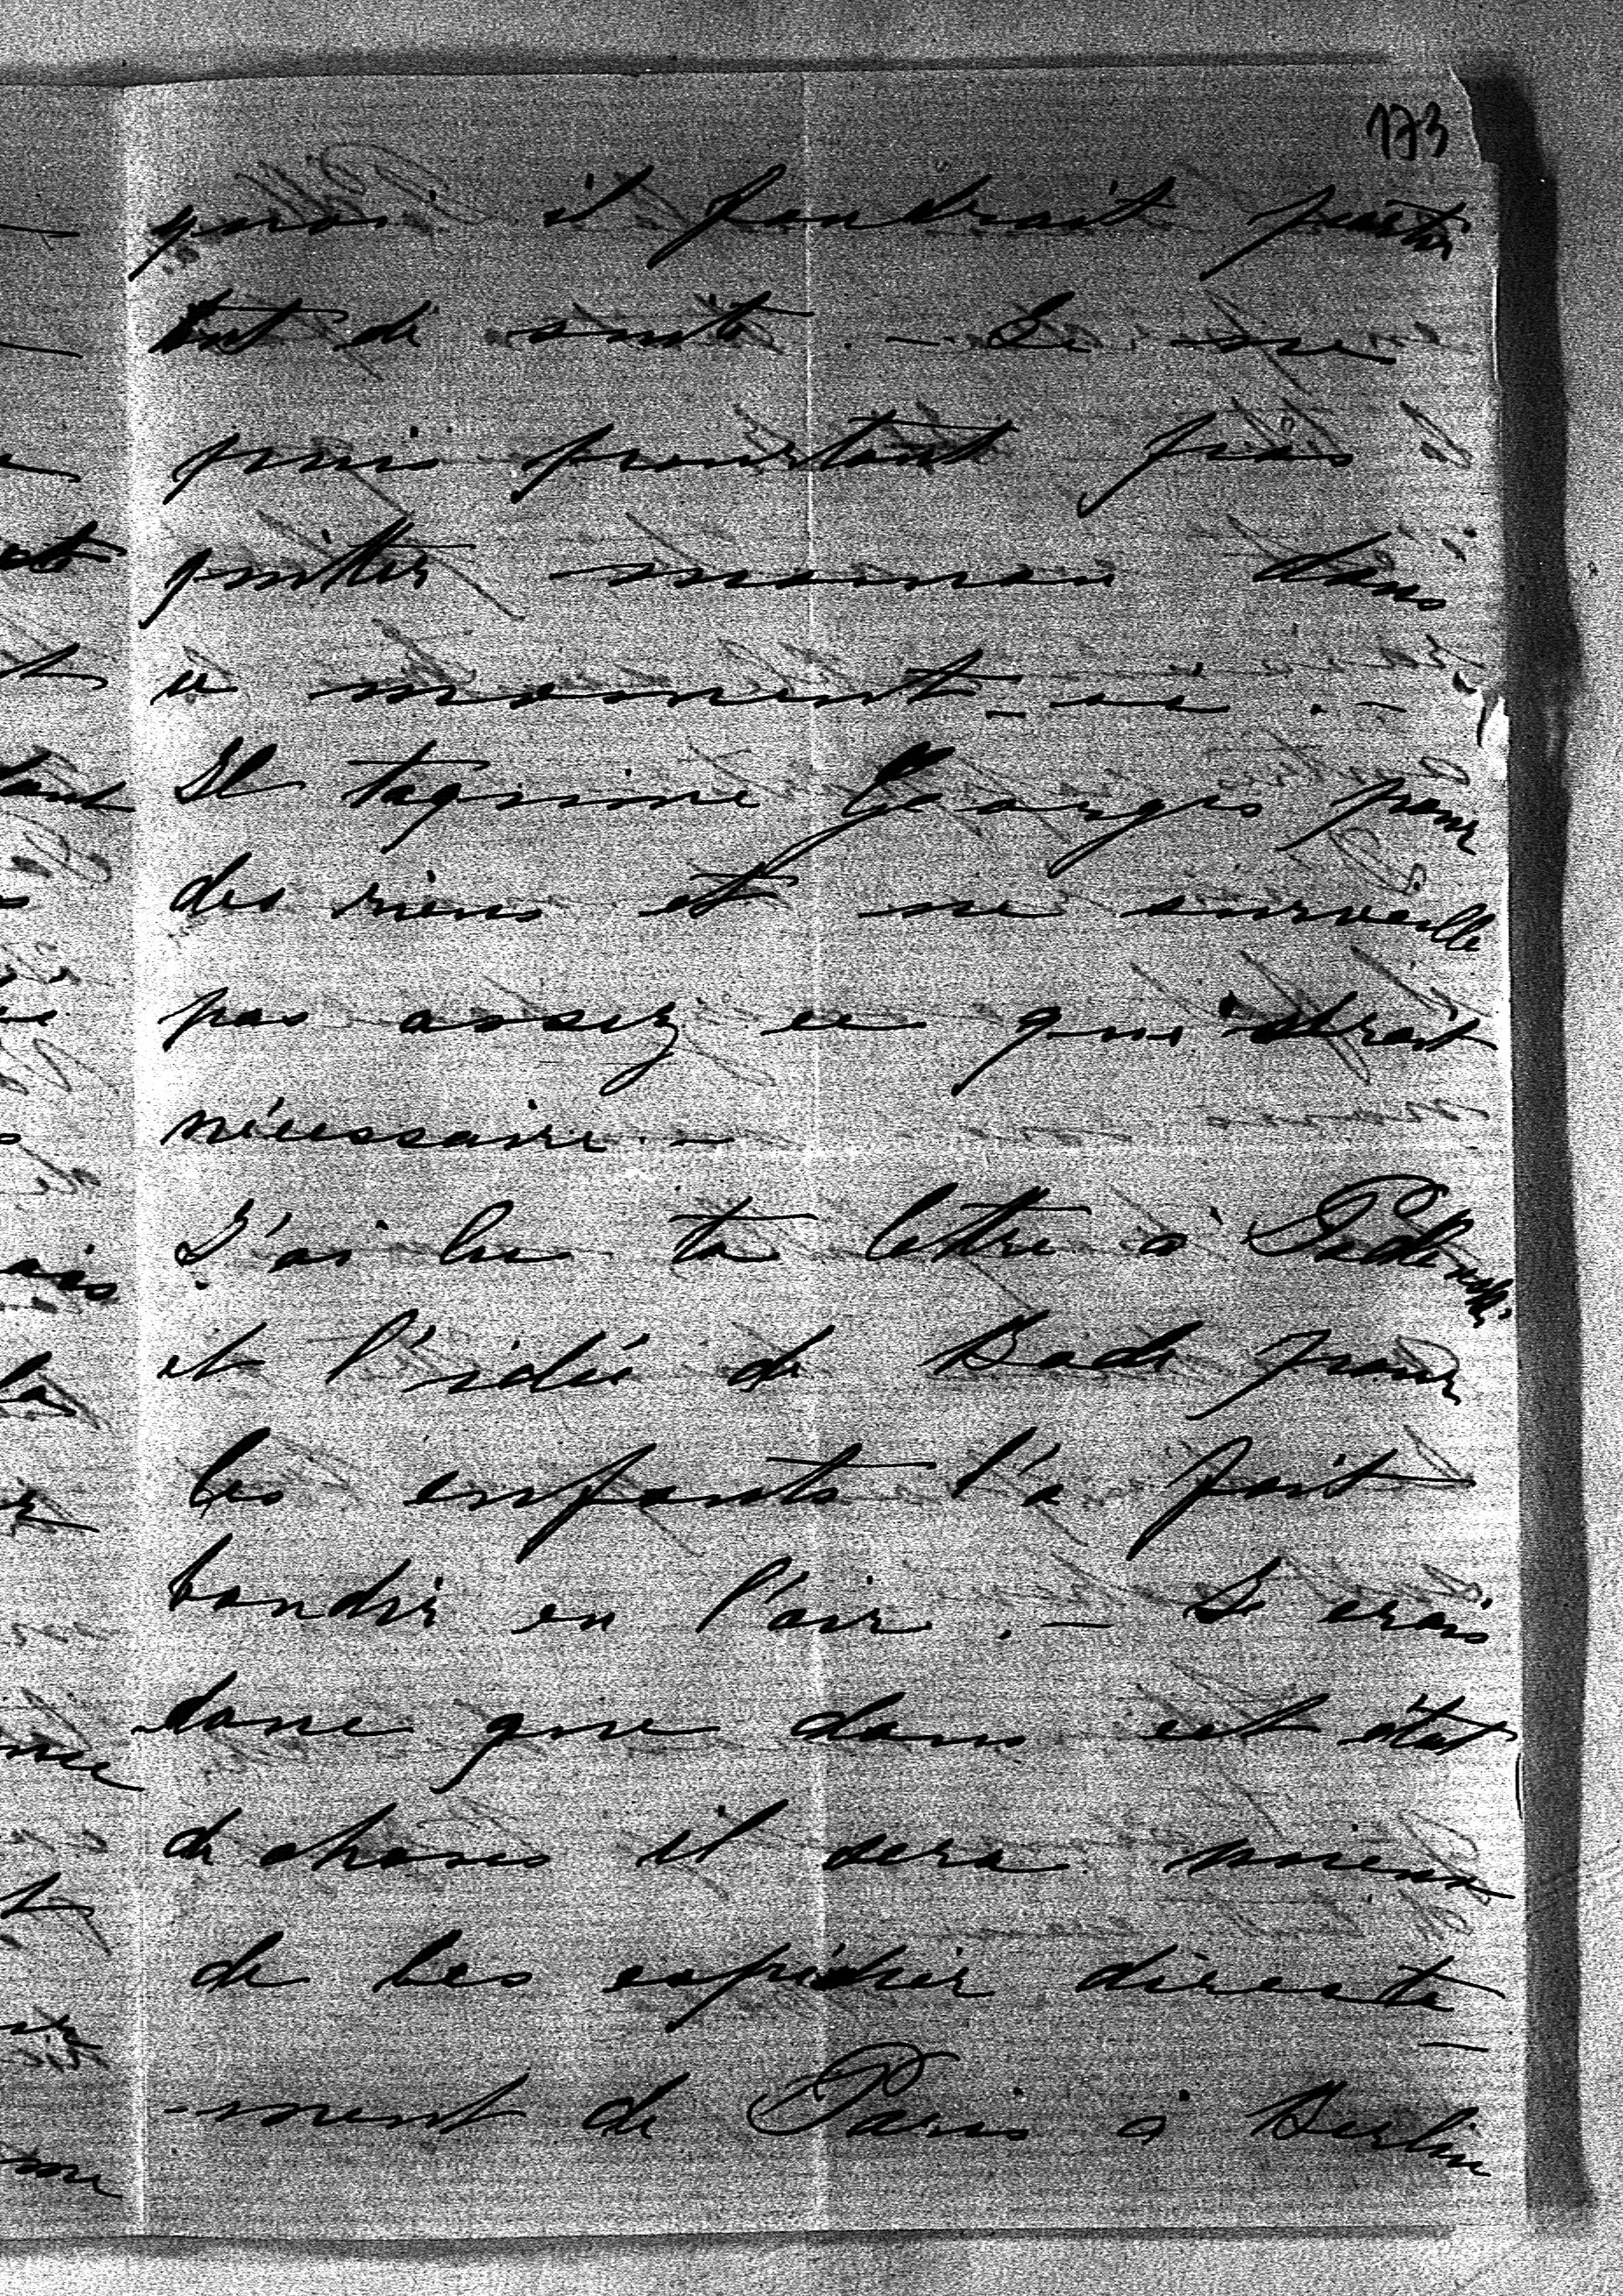 173
quoi il faudrait partir
tout de suite. — Je ne
puis pourtant pas
quitter maman dans
ce moment-ci. —
Il taquine Georges pour
des riens et ne surveille
pas assez ce qui serait
nécessaire. —
J'ai lu ta lettre à
et l'idée de Bade pour
les enfants l'a fait
bondir en l'air. — Je crois
donc que dans cet état
de choses il sera mieux
de les expédier directe-
-ment de Paris à Berlin